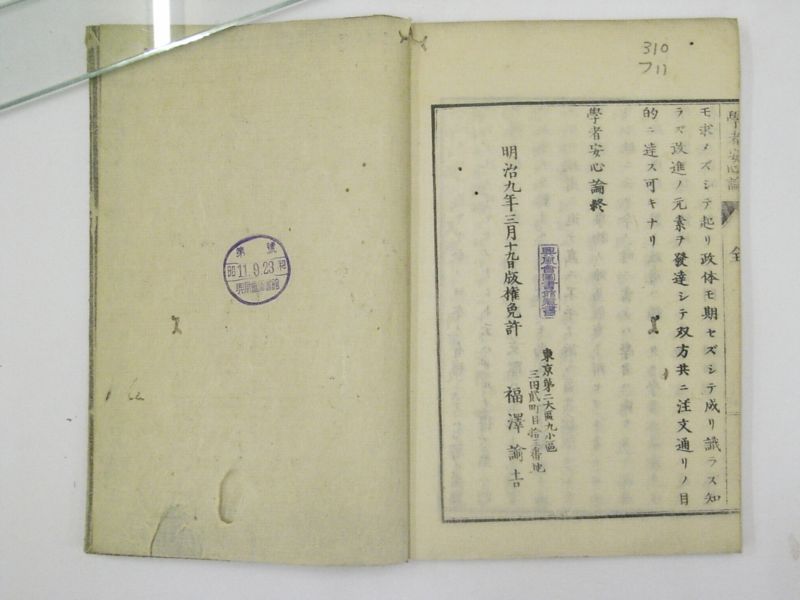 310
フ11
學者安心論
全
モ求メズシテ起リ政体モ期セズシテ成リ識ラズ知
ラズ改進ノ元素ヲ發達シテ双方共ニ注文通リノ目
的ニ達ス可キナリ
學者安心論終
興風會圖書館藏書
明治九年三月十九日版權免許
東京第二大區九小區
三田貳町目拾三番地
福澤諭吉
第 號
昭11.9.23和
興風會圖書館